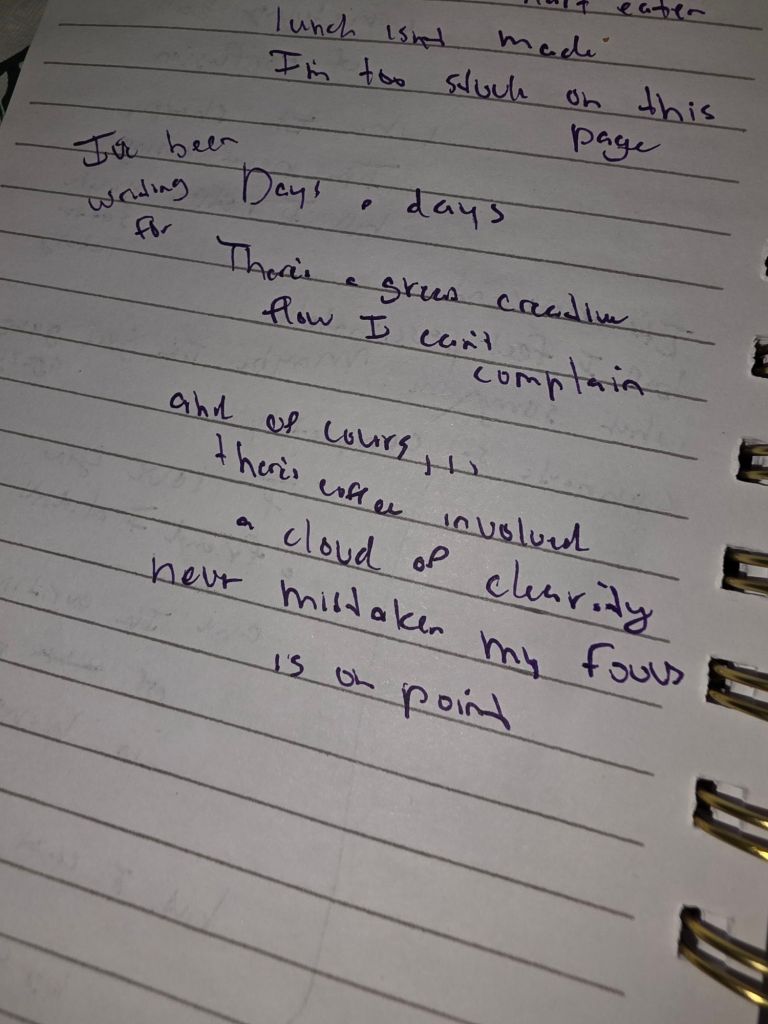 half eaten
lunch isnt made
I'm too stuck on this
page
I've been
writing Days . days
for
There's a green creative
flow I can't
complain
and of cours,,,
there's coffee involved
a cloud of clearity
never mistaken my focus
is on point